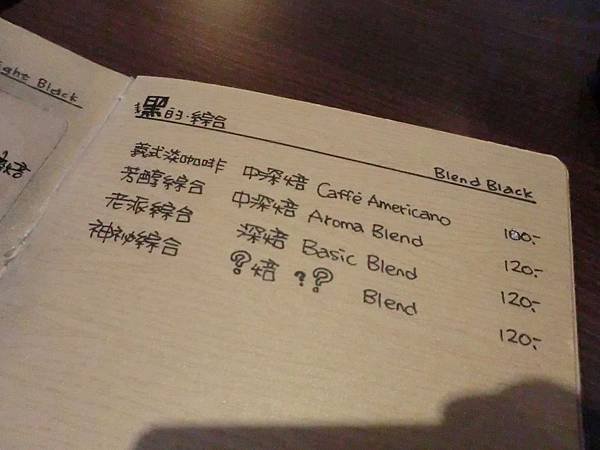 ight Black
焙
黑的·綜合
Blend Black
義式淡咖啡 中深焙 Caffé Americano 100.-
芳醇綜合 中深焙 Aroma Blend 120.-
老派綜合 深焙 Basic Blend 120.-
神祕綜合 ?焙 ?? Blend 120.-